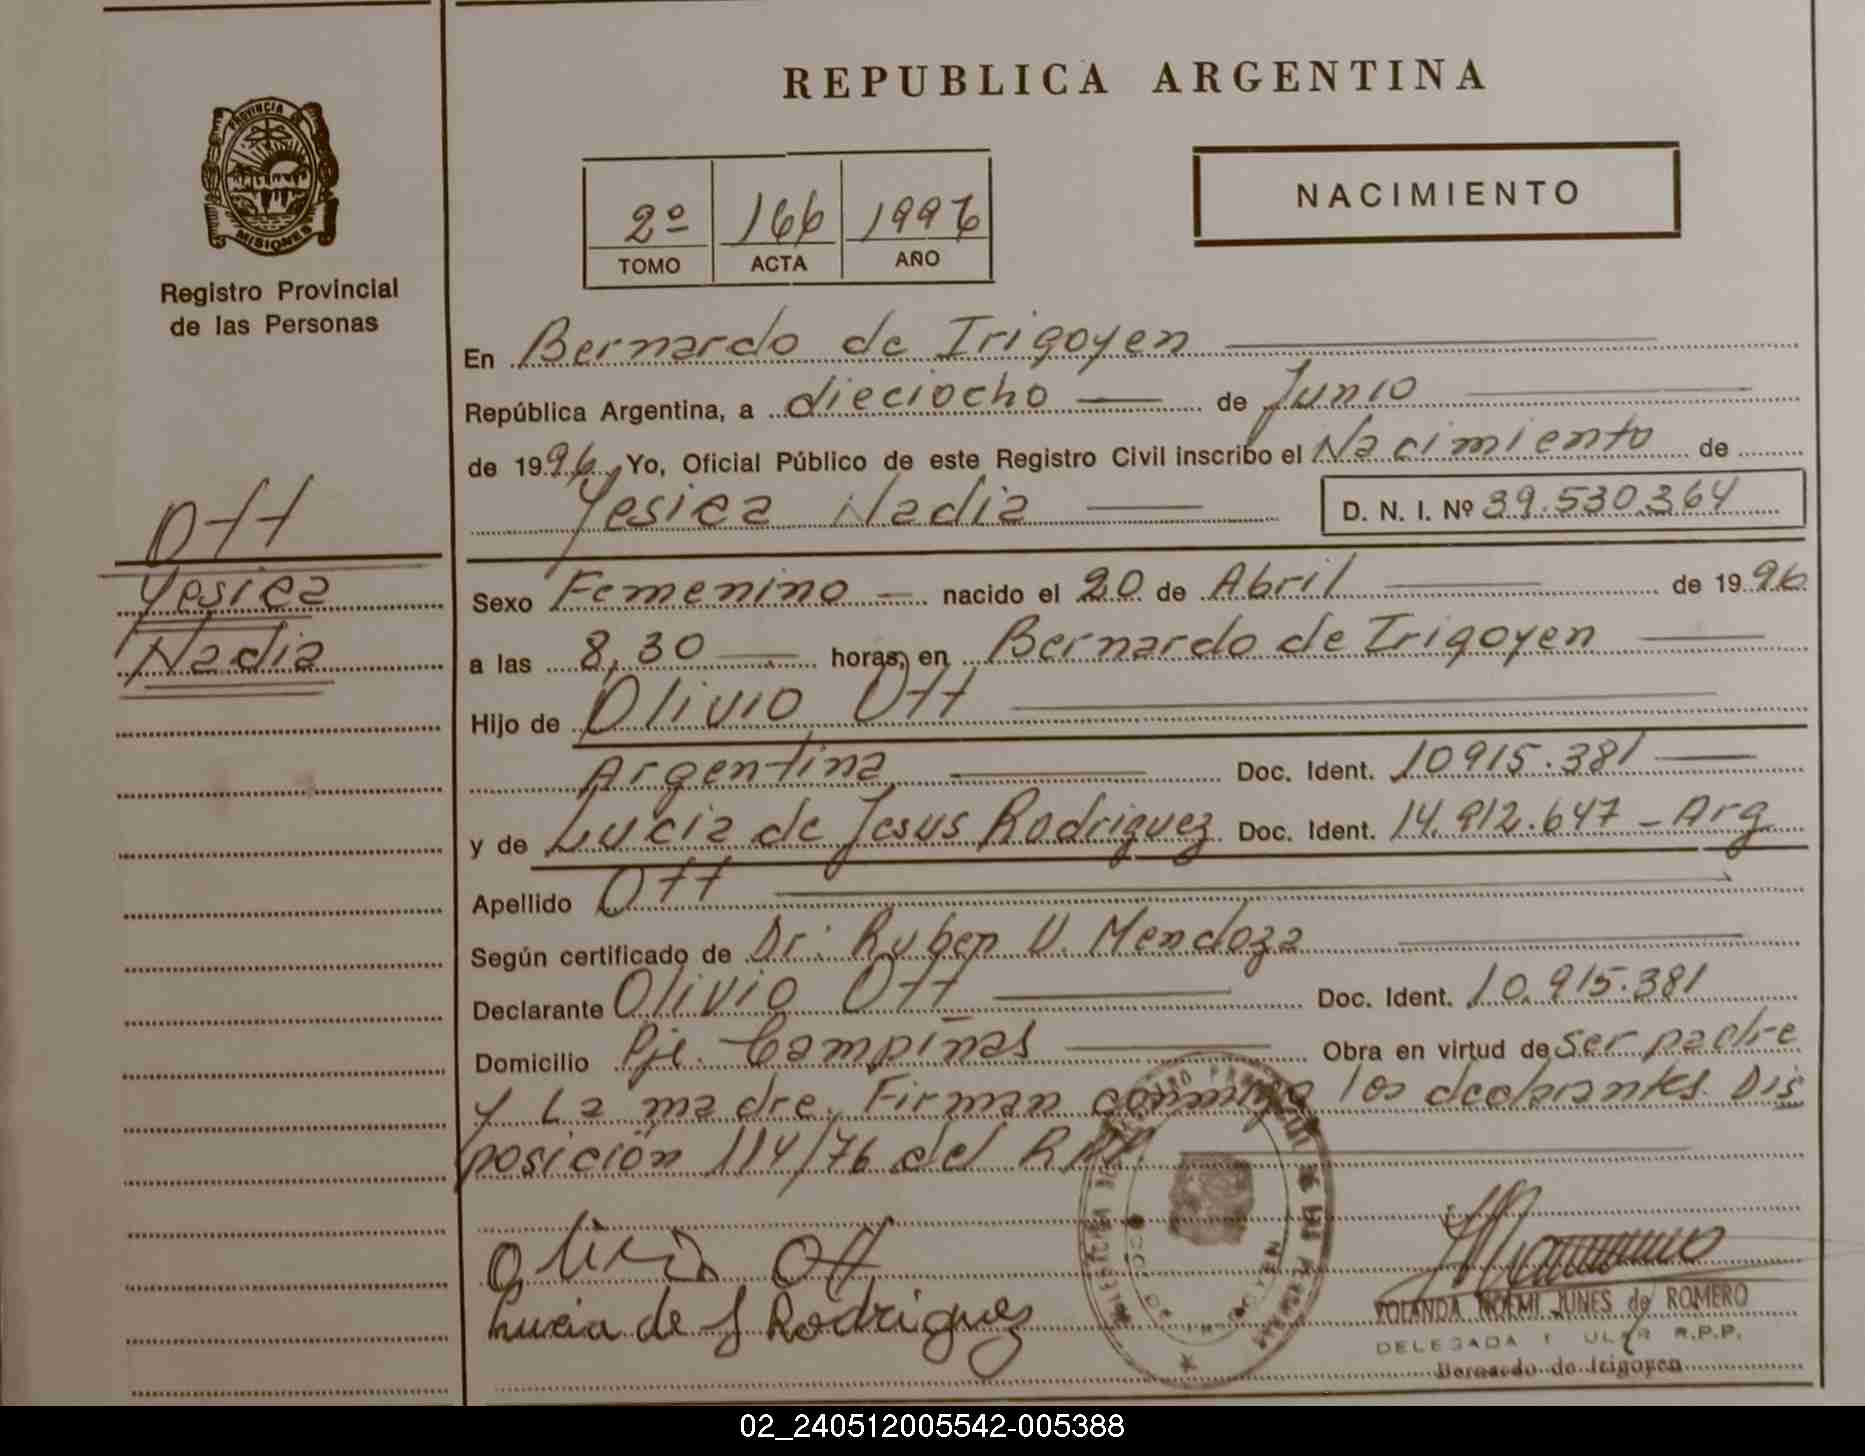 REPUBLICA ARGENTINA
PROVINCIA DE
MISIONES
Registro Provincial
de las Personas
2º 166 1996
TOMO ACTA AÑO
NACIMIENTO
En Bernardo de Irigoyen
República Argentina, a dieciocho de Junio
de 1996, Yo, Oficial Público de este Registro Civil inscribo el Nacimiento de
Yesica Nadia D. N. I. Nº 39.530.364
Ott
Yesica
Nadia
Sexo Femenino nacido el 20 de Abril de 1996
a las 8,30 horas, en Bernardo de Irigoyen
Hijo de Olivio Ott
Argentina Doc. Ident. 10915.381
y de Lucia de Jesus Rodriguez Doc. Ident. 14.912.647 - Arg
Apellido Ott
Según certificado de Dr: Ruben V. Mendoza
Declarante Olivio Ott Doc. Ident. 10.915.381
Domicilio Pje. Campinas Obra en virtud de ser padre
y La madre. Firman conmigo los declarantes. Dis
posición 114/76 del R.P.P.
Olivio Ott
Lucia de J Rodriguez
YOLANDA NOEMI JUNES de ROMERO
DELEGADA TITULAR R.P.P.
Bernardo de Irigoyen
02_240512005542-005388